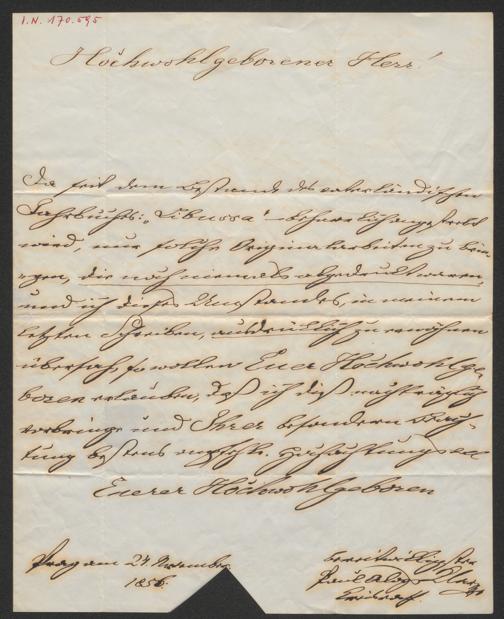 I.N. 170.595
Hochwohlgeborener Herr!
Da seit dem Bestande des vaterländischen
Jahrbuches: „Libussa" – 
wird, nur solche Originalarbeiten zu brin-
gen, die noch niemals abgedruckt waren,
und ich dieses Umstandes, in meinem
letzten Schreiben, ausdrücklich zu erwähnen
übersah, so wollen Euer Hochwohlge
boren erlauben, daß ich dieß nachträglich
vorbringe und Ihrer besondern Beach-
tung bestens empfehle. Hochachtungsvoll
Euerer Hochwohlgeboren
Prag am 24 November
1856.
bereitwilligster
Paul Aloys Klar